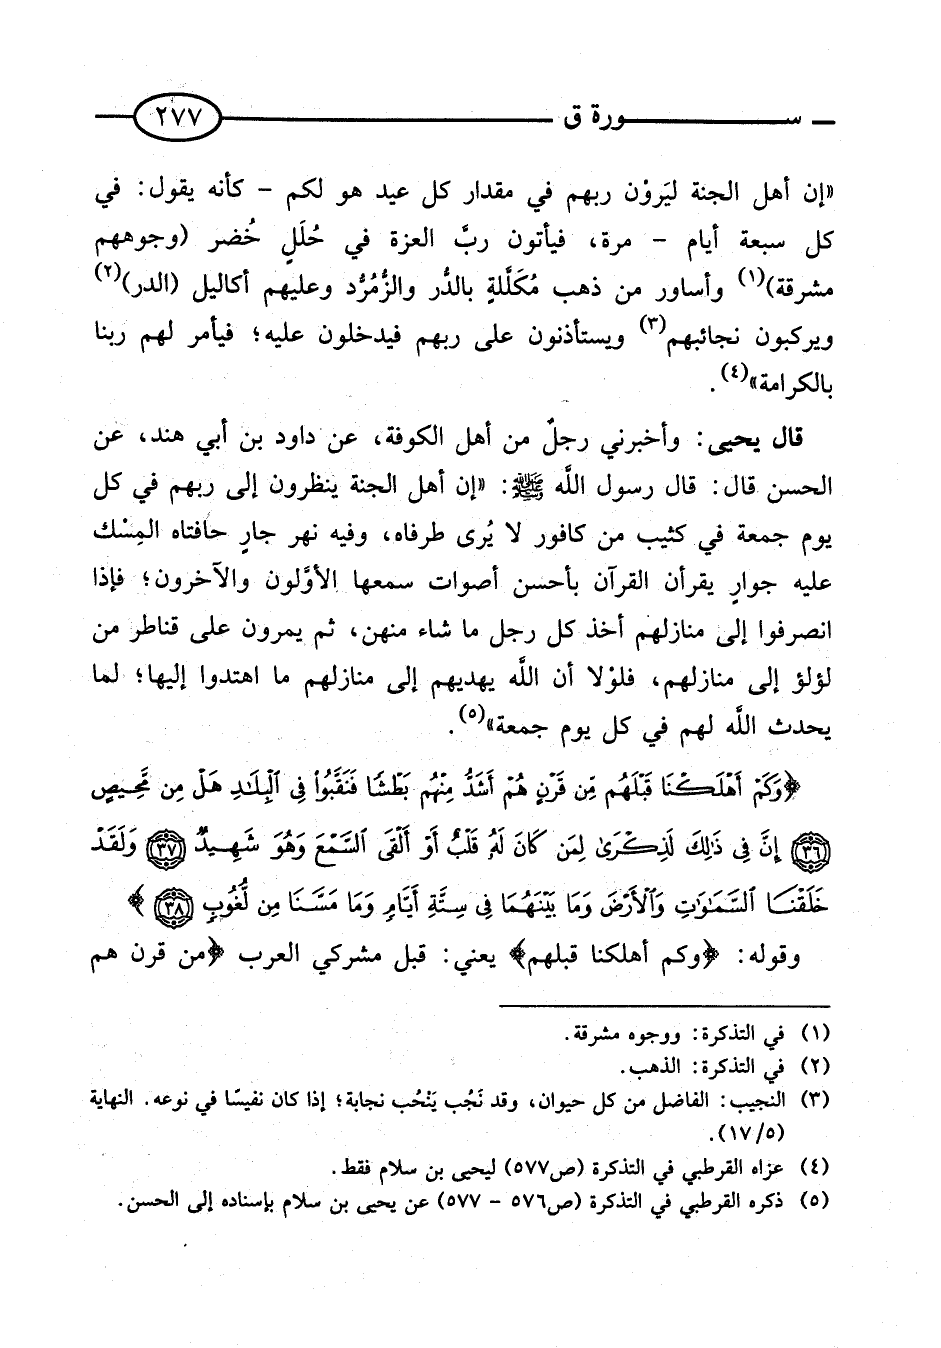 سورة ق ٢٧٧
«إن أهل الجنة ليَروْن ربهم في مقدار كل عيد هو لكم - كأنه يقول: في
كل سبعة أيام - مرة، فيأتون ربَّ العزة في حُلَلٍ خُضر (وجوههم
مشرقة)(١) وأساور من ذهب مُكَلَّلةٍ بالدُّر والزُّمُرُّد وعليهم أكاليل (الدر)(٢)
ويركبون نجائبهم(٣) ويستأذنون على ربهم فيدخلون عليه؛ فيأمر لهم ربنا
بالكرامة»(٤).
قال يحيى: وأخبرني رجلٌ من أهل الكوفة، عن داود بن أبي هند، عن
الحسن قال: قال رسول اللَّه ﷺ: «إن أهل الجنة ينظرون إلى ربهم في كل
يوم جمعة في كثيب من كافور لا يُرى طرفاه، وفيه نهر جارٍ حافتاه المِسْك
عليه جوارٍ يقرأن القرآن بأحسن أصوات سمعها الأوَّلون والآخرون؛ فإذا
انصرفوا إلى منازلهم أخذ كل رجل ما شاء منهن، ثم يمرون على قناطر من
لؤلؤ إلى منازلهم، فلوْلا أن اللَّه يهديهم إلى منازلهم ما اهتدوا إليها؛ لما
يحدث اللَّه لهم في كل يوم جمعة»(٥).
﴿وَكَمْ أَهْلَكْنَا قَبْلَهُم مِّن قَرْنٍ هُمْ أَشَدُّ مِنْهُم بَطْشًا فَنَقَّبُوا۟ فِى ٱلْبِلَـٰدِ هَلْ مِن مَّحِيصٍ
(٣٦) إِنَّ فِى ذَٰلِكَ لَذِكْرَىٰ لِمَن كَانَ لَهُۥ قَلْبٌ أَوْ أَلْقَى ٱلسَّمْعَ وَهُوَ شَهِيدٌ (٣٧) وَلَقَدْ
خَلَقْنَا ٱلسَّمَـٰوَٰتِ وَٱلْأَرْضَ وَمَا بَيْنَهُمَا فِى سِتَّةِ أَيَّامٍ وَمَا مَسَّنَا مِن لُّغُوبٍ (٣٨)﴾
وقوله: ﴿وكم أهلكنا قبلهم﴾ يعني: قبل مشركي العرب ﴿من قرن هم
(١) في التذكرة: ووجوه مشرقة.
(٢) في التذكرة: الذهب.
(٣) النجيب: الفاضل من كل حيوان، وقد نَجُب يَنْجُب نجابة؛ إذا كان نفيسًا في نوعه. النهاية
(١٧/٥).
(٤) عزاه القرطبي في التذكرة (ص٥٧٧) ليحيى بن سلام فقط.
(٥) ذكره القرطبي في التذكرة (ص٥٧٦ - ٥٧٧) عن يحيى بن سلام بإسناده إلى الحسن.